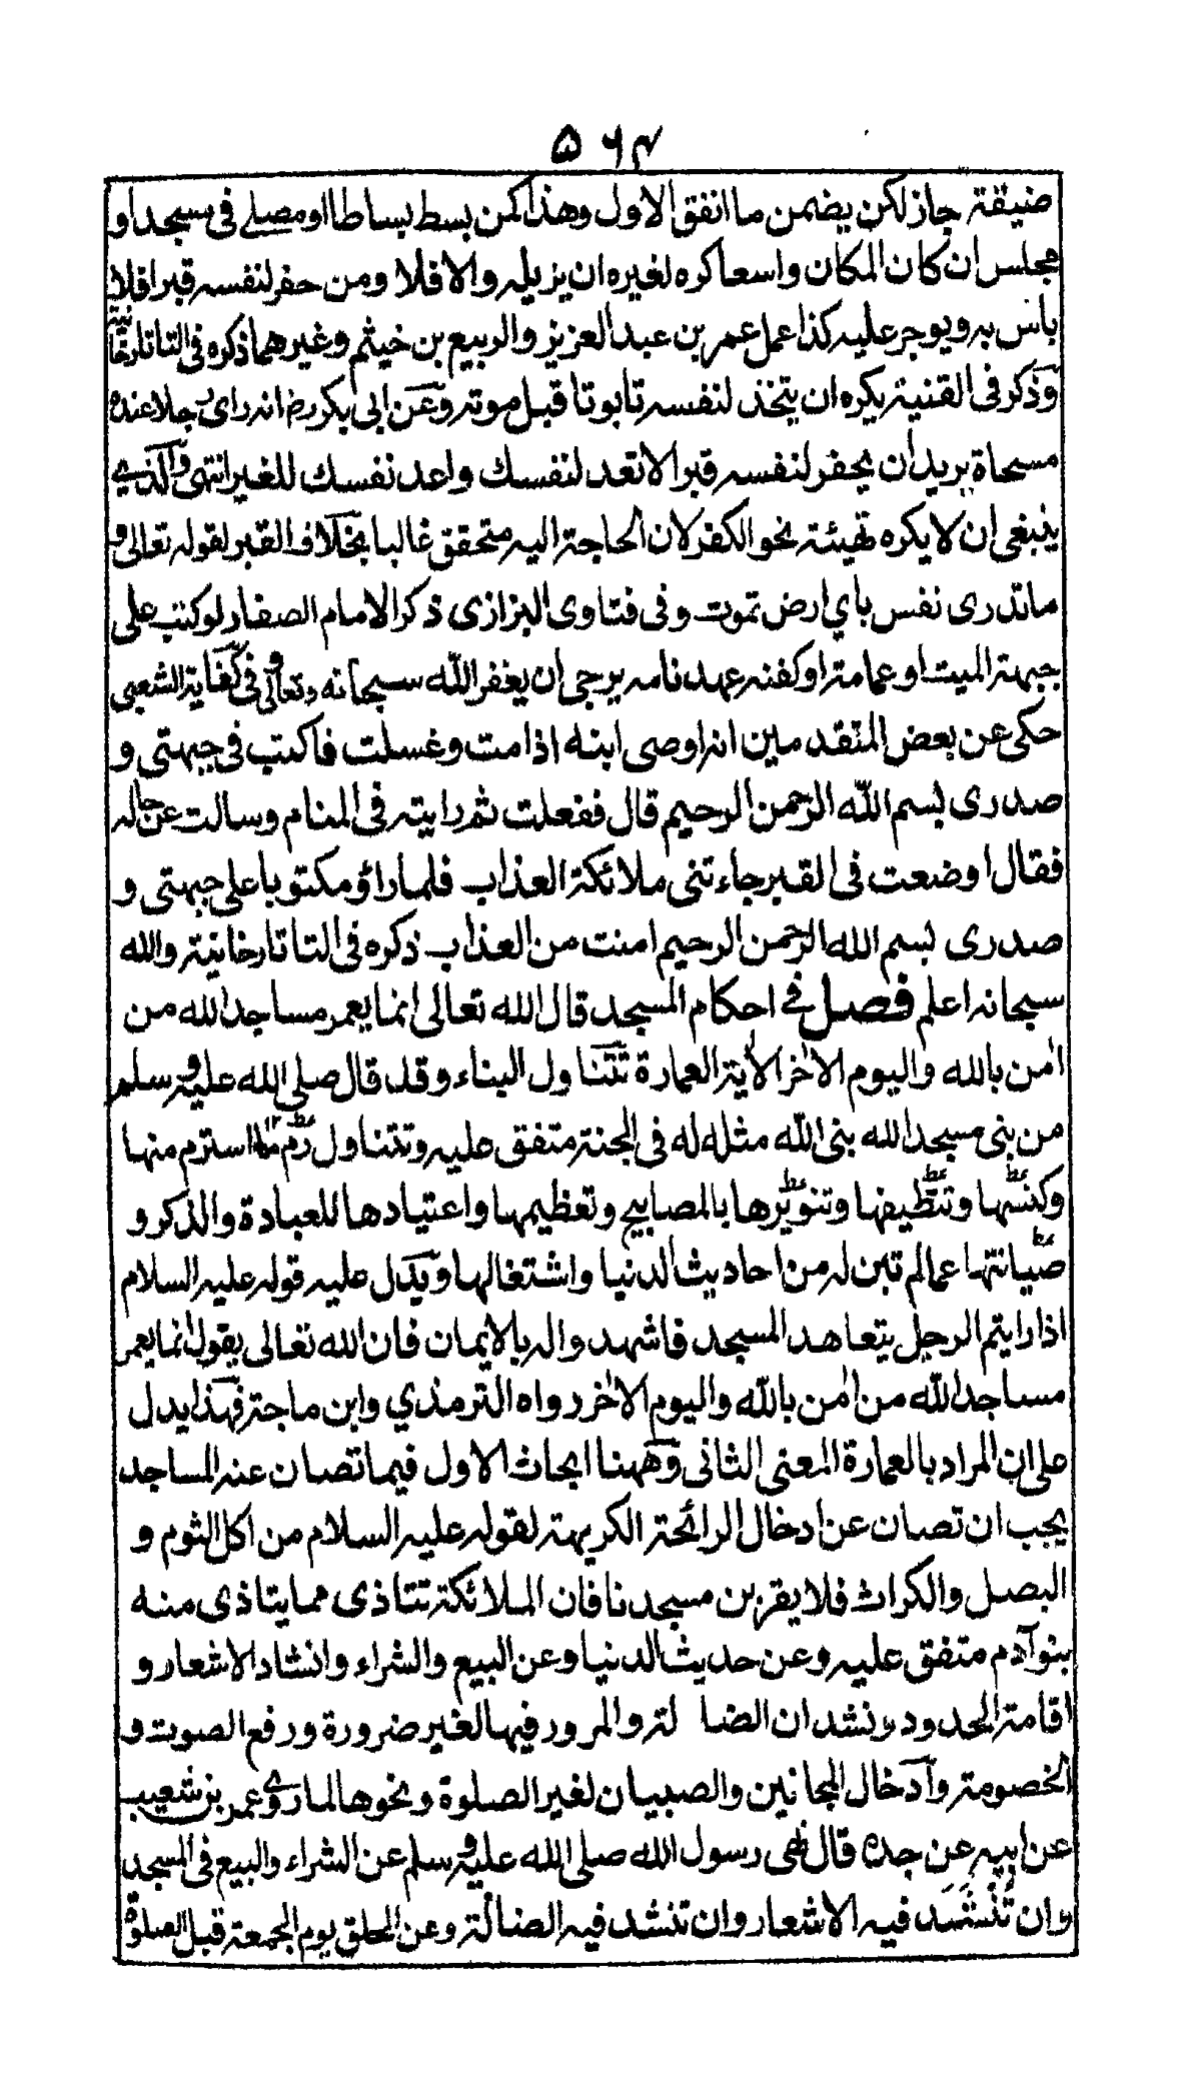 ۵۶۴
ضيقة جاز لكن يضمن ما انفق الاول وهذا كمن بسط بساطا او مصلے فى مسجد او
مجلس ان كان المكان واسعا كره لغيره ان يزيله والا فلا ومن حفر لنفسه قبرا فلا
باس به ويوجر عليه كذا عمل عمر بن عبد العزيز والربيع بن خيثم وغيرهما ذكره فى التاتارخانية
وذكر فى القنية يكره ان يتخذ لنفسه تابوتا قبل موته وعن ابى بكر رض انه راى رجلا عنده
مسحاة يريد ان يحفر لنفسه قبرا لا تعد لنفسك واعد نفسك للغير انتهى والذے
ينبغى ان لا يكره تهيئة نحو الكفن لان الحاجة اليه متحقق غالبا بخلاف القبر لقوله تعالى و
ماتدرى نفس باي ارض تموت وفى فتاوى البزازى ذكر الامام الصفار لو كتب على
جبهة الميت او عمامته او كفنه عهد نامه يرجى ان يغفر الله سبحانه وتعالى وفى كفاية الشعبى
حكى عن بعض المتقدمين انه اوصى ابنه اذا مت وغسلت فاكتب فى جبهتى و
صدرى بسم الله الرحمن الرحيم قال ففعلت ثم رايته فى المنام وسالت عن حاله
فقال اوضعت فى القبر جاءتنى ملائكة العذاب فلما راؤ مكتوبا على جبهتى و
صدرى بسم الله الرحمن الرحيم امنت من العذاب ذكره فى التاتارخانية والله
سبحانه اعلم فصل فے احكام المسجد قال الله تعالى انما يعمر مساجد الله من
اٰمن بالله واليوم الاٰخر الاٰية العمارة تتناول البناء وقد قال صلى الله عليه وسلم
من بنى مسجد الله بنى الله مثله له فى الجنة متفق عليه وتتناول رم ما استرم منها
وكنسها وتنظيفها وتنويرها بالمصابيح وتعظيمها واعتيادها للعبادة والذكر و
صيانتها عمالم تبن له من احاديث الدنيا واشتغالها ويدل عليه قوله عليه السلام
اذا رايتم الرجل يتعاهد المسجد فاشهدوا له بالايمان فان الله تعالى يقول انما يعمر
مساجد الله من اٰمن بالله واليوم الاٰخر رواه الترمذي وابن ماجة فهذا يدل
على ان المراد بالعمارة المعنى الثانى وههنا ابحاث الاول فيما تصان عنه المساجد
يجب ان تصان عن ادخال الرائحة الكريهة لقوله عليه السلام من اكل الثوم و
البصل والكراث فلا يقربن مسجدنا فان الملائكة تتاذى مما يتاذى منه
بنو آدم متفق عليه وعن حديث الدنيا وعن البيع والشراء وانشاد الاشعار و
اقامة الحدود ونشدان الضا لة والمرور فيها لغير ضرورة ورفع الصوت و
الخصومة وادخال المجانين والصبيان لغير الصلوة ونحوها لما روى عمر بن شعيب
عن ابيه عن جده قال نهى رسول الله صلى الله عليه وسلم عن الشراء والبيع فى المسجد
وان تُنْشَد فيه الاشعار وان تنشد فيه الضالة وعن الحلق يوم الجمعة قبل الصلوة